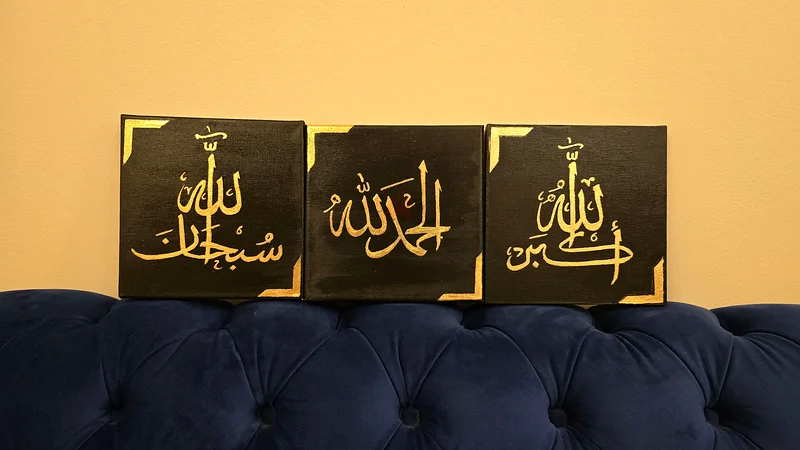 سُبْحَان الله
الحمد لله
الله أكبر